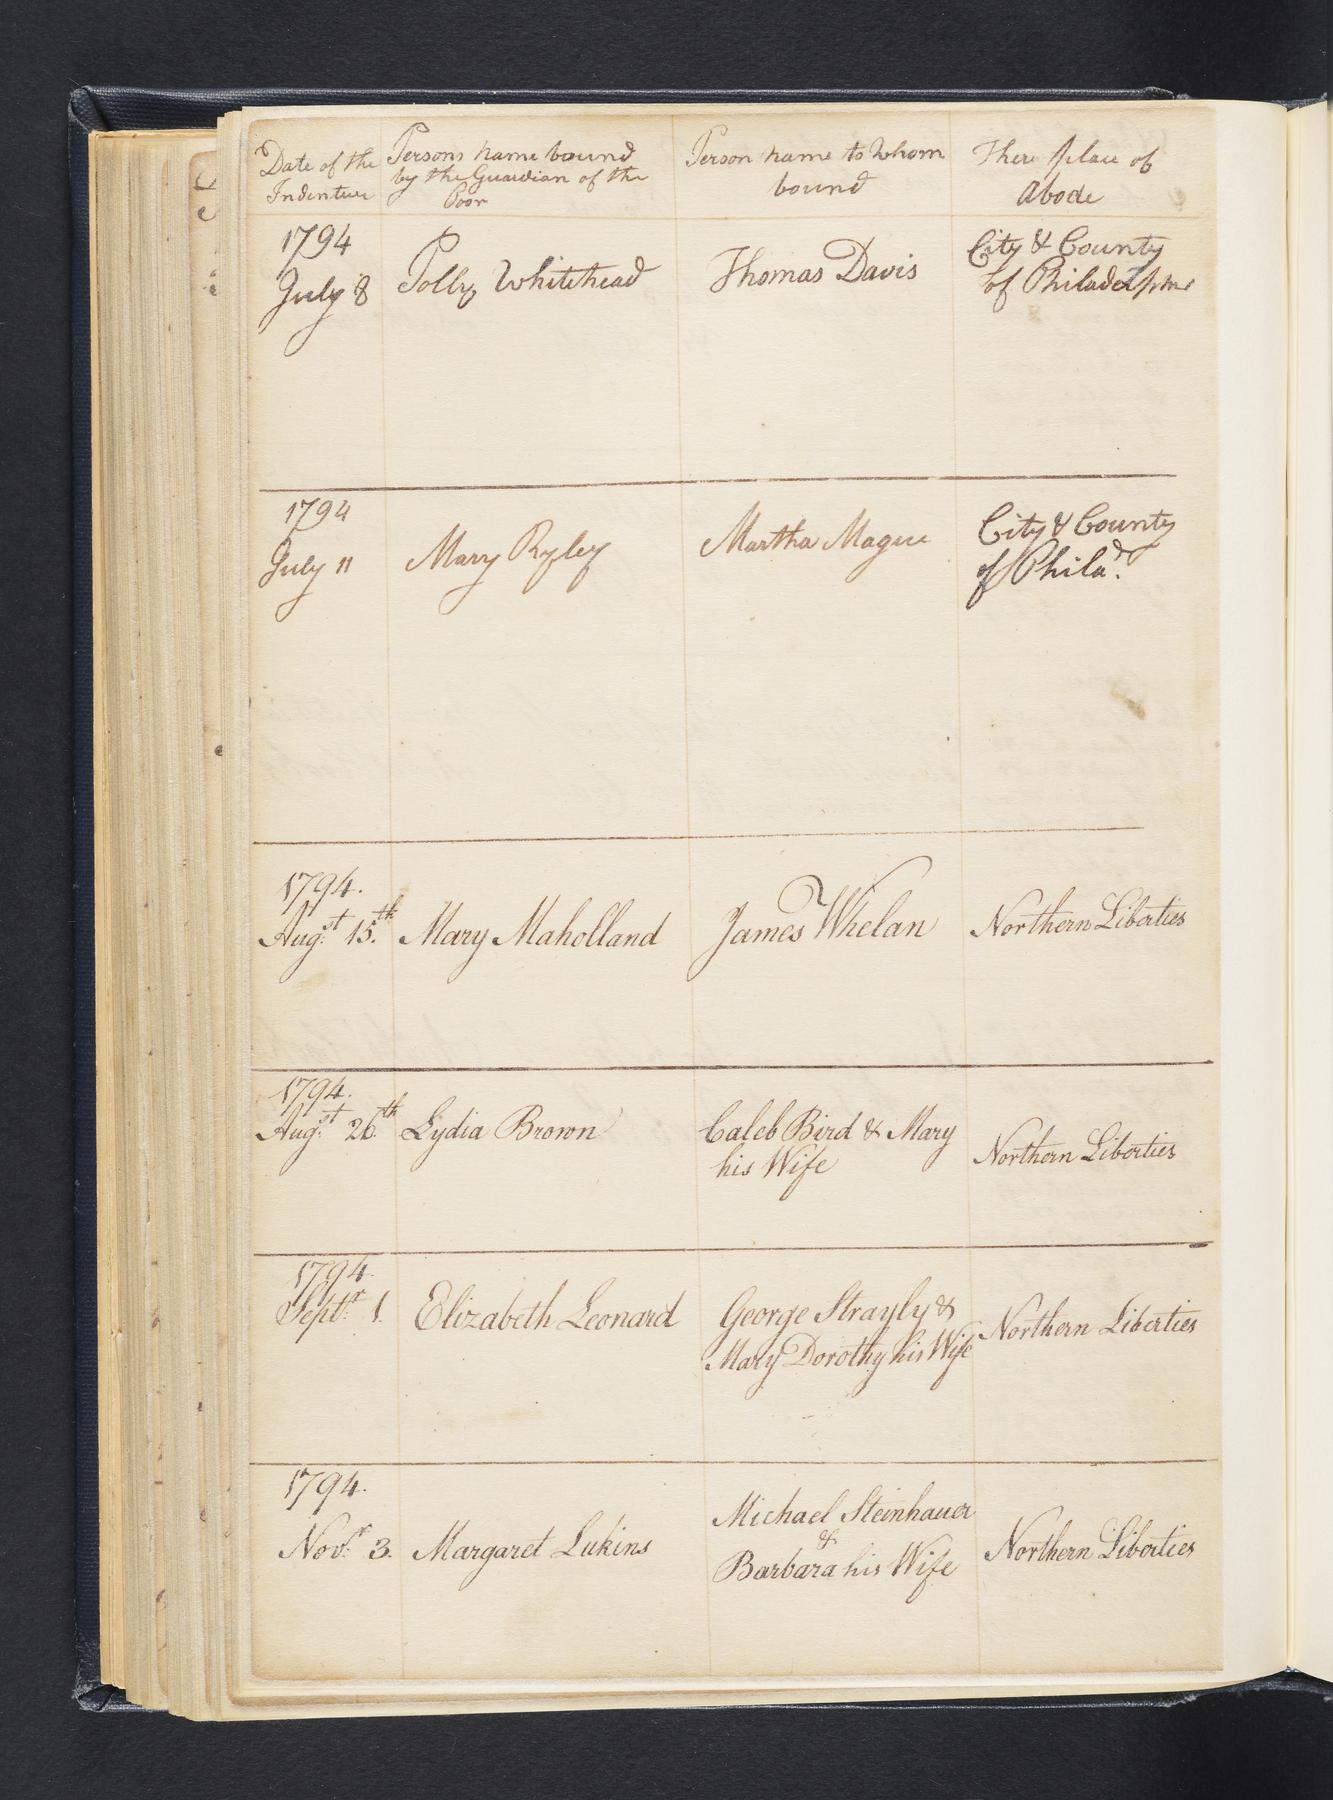 Date of the Indenture
Persons name bound by the Guardian of the Poor
Person name to whom bound
There place of Abode
1794
July 8
Polly Whitehead
Thomas Davis
City & County
of Philadelphia
1794
July 11
Mary Ryley
Martha Mague
City & County
of Philad.
1794.
Augst 15th
Mary Maholland
James Whelan
Northern Liberties
1794.
Augst 26th
Lydia Brown
Caleb Bird & Mary
his Wife
Northern Liberties
1794.
Septr 1.
Elizabeth Leonard
George Strayly &
Mary Dorothy his Wife
Northern Liberties
1794.
Novr 3.
Margaret Lukins
Michael Steinhauer
&
Barbara his Wife
Northern Liberties